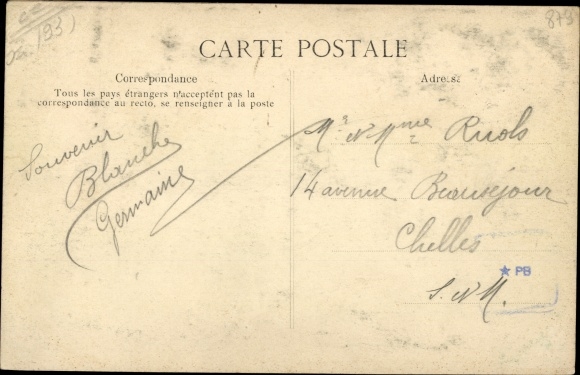 (93)
873
CARTE POSTALE
Correspondance
Tous les pays étrangers n'acceptent pas la
correspondance au recto, se renseigner à la poste
Souvenir
Blanche
Germaine
Adresse
Mr & Mme Ruols
14 avenue Beauséjour
Chelles
★ PB
S. & M.